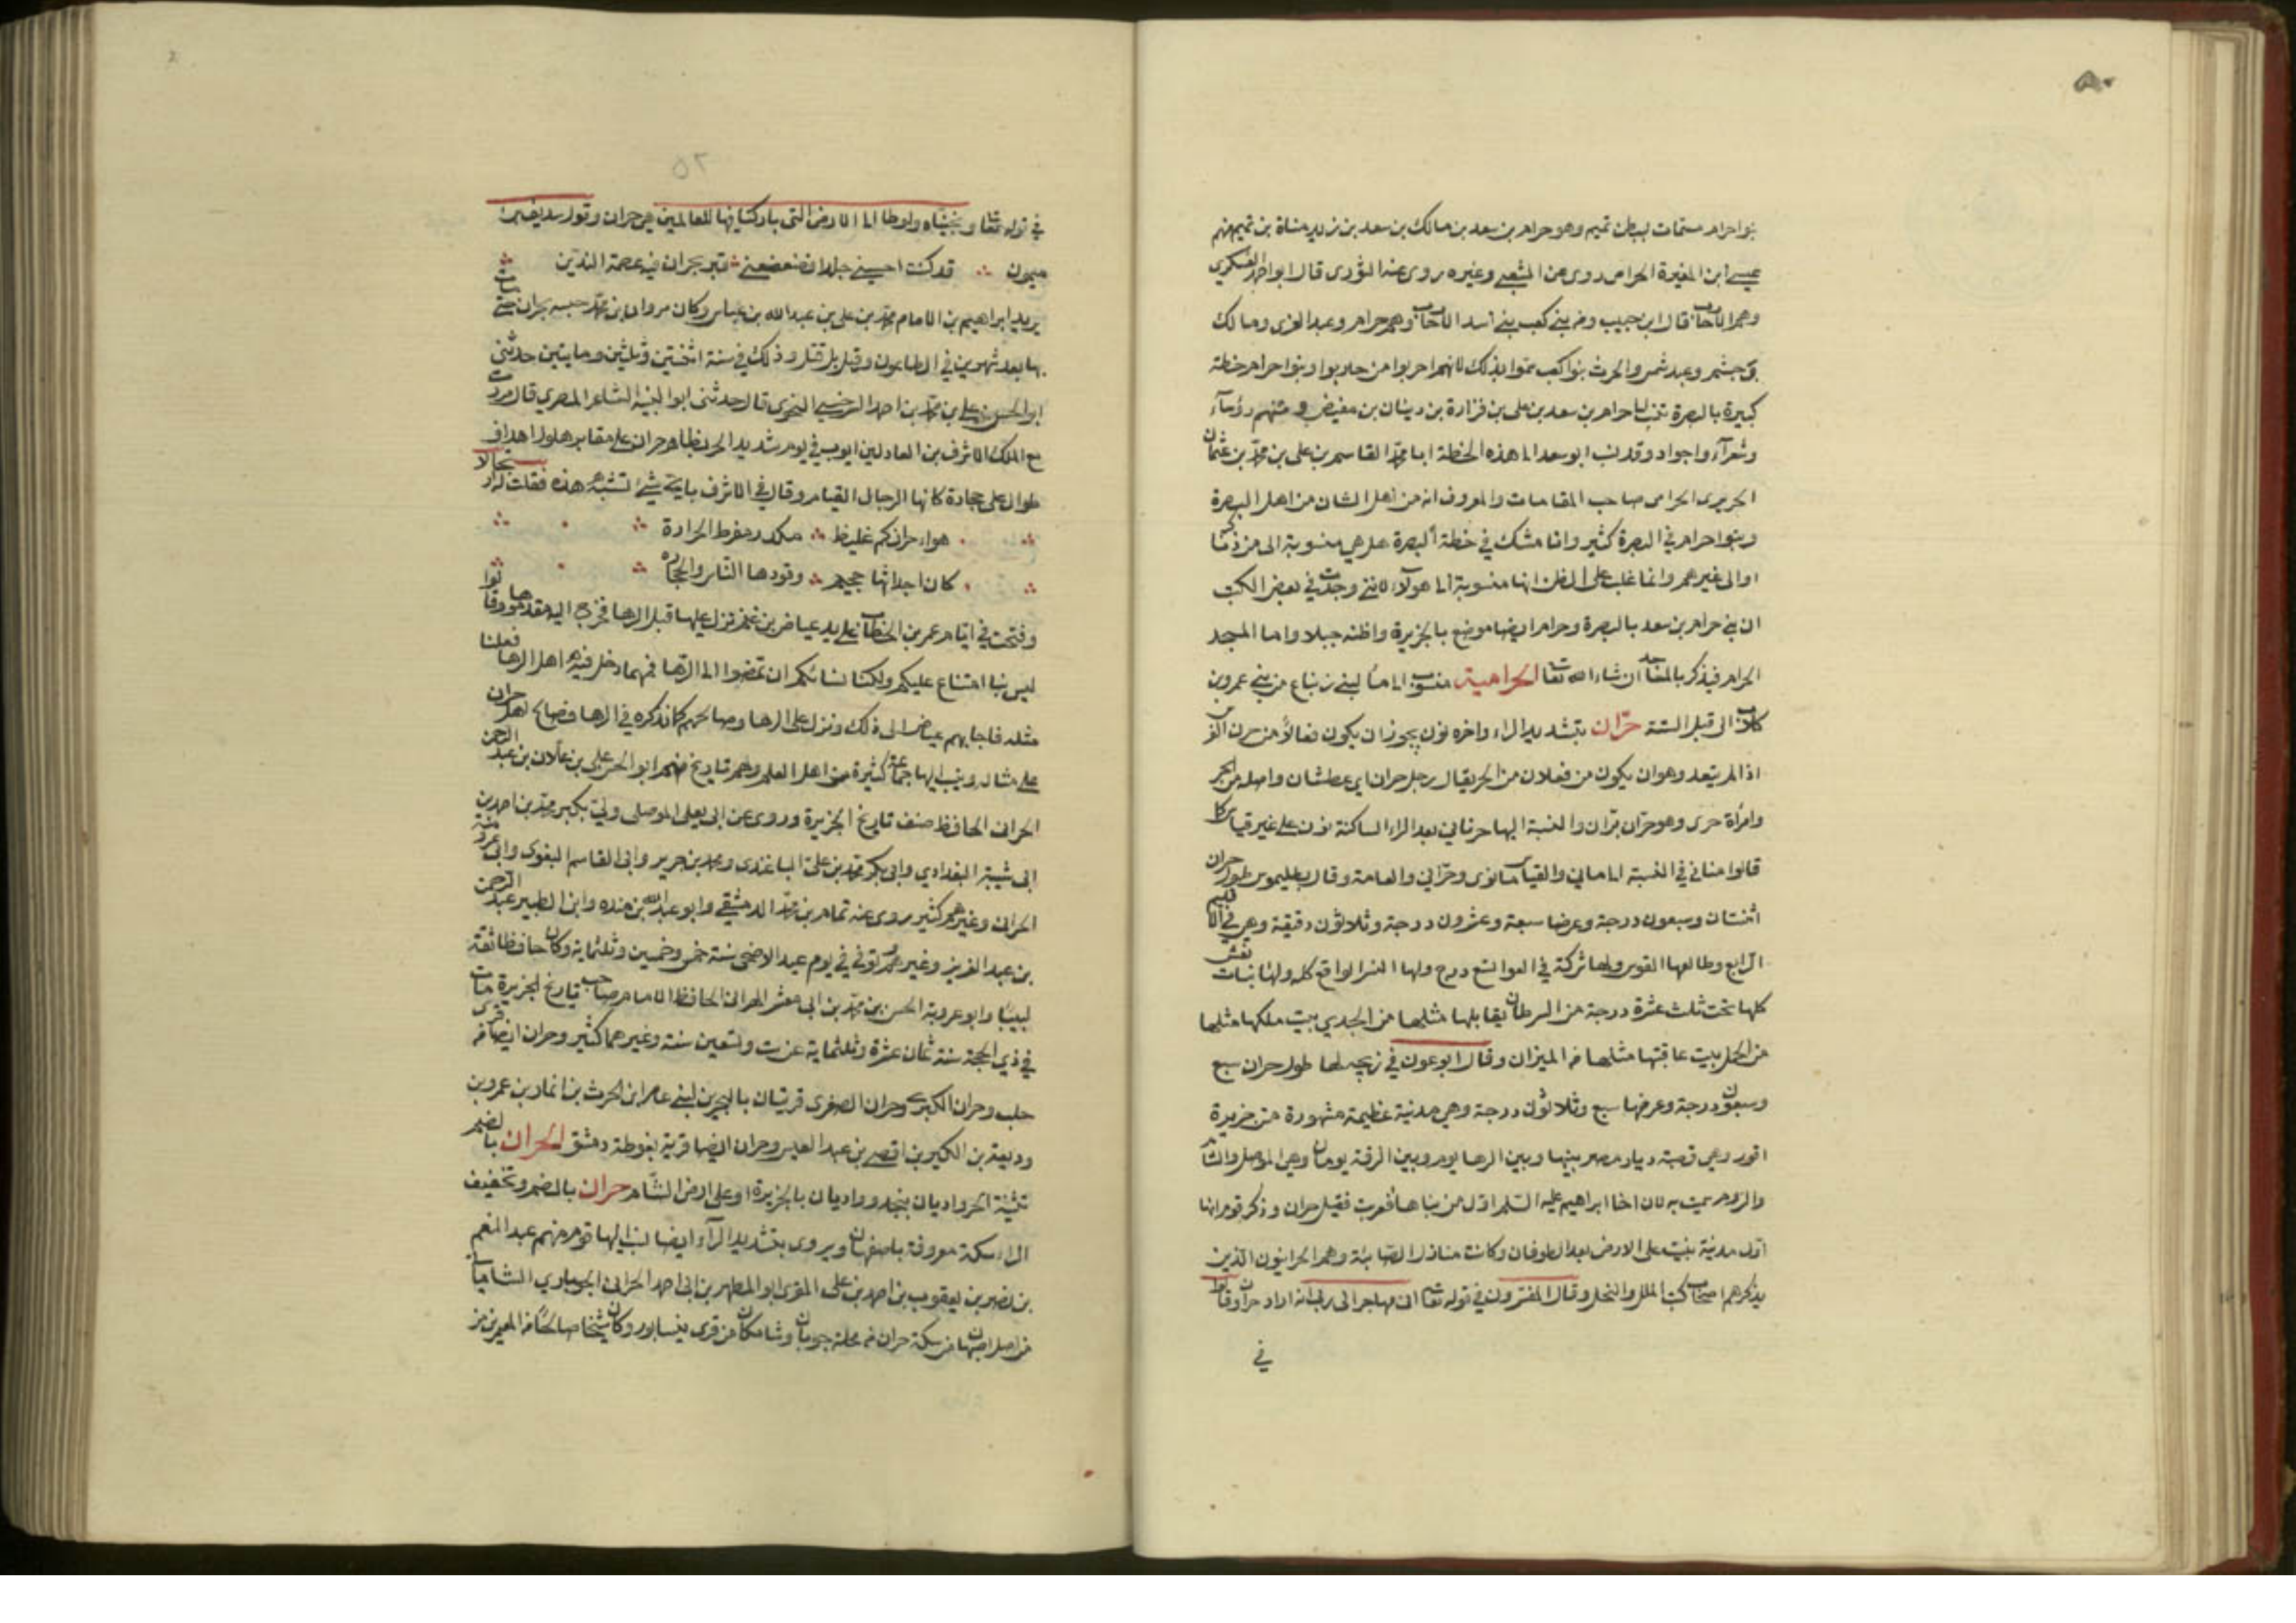 ٥٠
بنوا حرام ستمات لبطن تميم وهو حرام بن سعد بن مالك بن سعد بن زيد مناة بن تميم منهم
عيسى ابن المغيرة الحرامى روى عن الشعبى وغيره روى عنه الثورى قال ابو احمد العسكرى
وهم الاحاب قال ابن حبيب وفى بنى كعب بنى اسد الاحاب وهم حرام وعبد العزى ومالك
وجشم وعبد شمس والحرث بنوا كعب سموا بذلك لانهم احربوا من حاربوا وبنوا حرام خطة
كبيرة بالبصرة تنسب الى حرام بن سعد بن على بن فزارة بن دينان بن مغيض ومنهم رؤساء
وشعرآء واجواد وقد نسب ابو سعد الى هذه الخطة ابا محمد القاسم بن على بن محمد بن عثمان
الحريرى الحرامى صاحب المقامات والمعروف انه من اهل الشان من اهل البصرة
وبنوا حرام فى البصرة كثير وانا مشك فى خطة البصرة هل هى منسوبة الى من ذكرنا
اوالى غيرهم وانما غلب على الظن انها منسوبة الى هولآء لاننى وجدت فى بعض الكتب
ان بنى حرام بن سعد بالبصرة وحرام ايضا موضع بالجزيرة واظنه جبلا واما المسجد
الحرام فيذكر بالمساجد ان شاء الله تعا الحرامية منسوب الى ماء لبنى زنباع من بنى عمرو بن
كلاب الى قبل الستة حرّان بتشديد الراء واخره نون يجوز ان يكون فعالا من حرن الفرس
اذا لم يتعد وهوان يكون من فعلان من الحر يقال رجل حران اى عطشان واصله من الحر
وامرأة حرى وهو حران بران والنسبة اليها حرنانى بعد الراء الساكنة نون على غير قياس كما
قالوا منانى فى النسبة الى مانى والقياس مانوى وحرّانى والعامة وقال بطليموس طول حران
اثنتان وسبعون درجة وعرضا سبعة وعشرون درجة وثلاثون دقيقة وهى فى الاقليم
الرابع وطالعها القوس ولها شركة فى العوا تسع درج ولها النسر الواقع كله ولها بنات نعش
كلها تحت ثلث عشرة درجة من السرطان يقابلها مثلها من الجدى بيت ملكها مثلها
من الحمل بيت عاقبتها مثلها من الميزان وقال ابو عون فى زيجه لها طول حران سبع
وسبعون درجة وعرضها سبع وثلاثون درجة وهى مدنية عظيمة مشهورة من جزيرة
اقور وهى قصبة ديار مصر بينها وبين الرها يوم وبين الرقة يومان وهى الموصل والشام
والروم سميت به لان اخا ابراهيم عليه السلم اول من بناها فعربت فقيل حران وذكر قوم انها
اول مدنية بنيت على الارض بعد الطوفان وكانت منازل الصابئة وهم الحرانيون الذين
يذكرهم اصحاب كتب الملل والنحل وقال المفسرون فى قوله تعا انى مهاجر الى ربى انه اراد حران وقالوا
فى
٢٥
فى قوله تعا ونجيناه ولوطا الى الارض التى باركنا فيها للعالمين هى حران وقول سديف بن
ميمون قد كنت احسبنى جلدا فضعضعنى قبر بحران فيه عصمة الدين
يريد ابراهيم بن الامام محمد بن على بن عبد الله بن عباس وكان مروان بن محمد حبسه بحران حتى مات
بها بعد شهرين فى الطاعون وقيل بل قتل وذلك فى سنة اثنتين وثلثين ومايتين حدثنى
ابو الحسن على بن محمد بن احمد السرخسى النحوى قال حدثنى ابو النبيه الشاعر المصرى قال مررت
مع الملك الاشرف بن العادل بن ايوب فى يوم شديد الحر بظاهر حران على مقابر ولها اهداف
طوال على حجارة كانها الرجال القيام وقال فى الاشرف باى شئ تشبه هذه فقلت ارتجالا
هواء حرانكم غليظ مكدر مفرط الحرارة
كان اجداثها جحيم وقودها الناس والحجاره
وفتحت فى ايام عمر بن الخطاب على يد عياض بن غنم نزل عليها قبل الرها فخرج اليه مقدموها وقالوا
ليس بنا امتناع عليكم ولكنا نسائلكم ان تمضوا الى الرها فمهما دخل فيه اهل الرها فعلنا
مثله فاجابهم عياض الى ذلك ونزل على الرها وصالحهم كما نذكره فى الرها فصالح اهل حران
على مثال وينسب اليها جماعة كثيرة من اهل العلم وهم تاريخ منهم ابو الحسن على بن علان بن عبد الرحمن
الحرانى الحافظ صنف تاريخ الجزيرة وروى عن ابى يعلى الموصلى وابى بكر محمد بن احمد بن
ابى شيبة البغدادي وابى بكر محمد بن على الباغندى ومحمد بن جرير وابى القاسم البغوى وابى عروبة
الحرانى وغيرهم كثير روى عنه تمام بن محمد الدمشقى وابو عبد الله بن منده وابن الطبير عبد الرحمن
بن عبد العزيز وغيرهم توفى فى يوم عيد الاضحى سنة خمس وخمسين وثلثماية وكان حافظا ثقة
لبيبا وابو عروبة الحسن بن محمد بن ابى معشر الحرانى الحافظ الامام صاحب تاريخ الجزيرة مات
فى ذى الحجة سنة ثمان عشرة وثلثماية عن ست وتسعين سنة وغيرهما كثير وحران ايضا من قرى
حلب وحران الكبرى وحران الصغرى قريتان بالبحرين لبنى عامر ابن الحرث بن انمار بن عمرو بن
وديعة بن الكير بن اقصى بن عبد القيس وحران ايضا قرية بغوطة دمشق الحران بالضم
تثنية الحر واديان بنجد وواديان بالجزيرة او على ارض الشام حران بالضم وتخفيف
الراء سكة معروفة باصفهان ويروى بتشديد الرآء ايضا نسب اليها قوم منهم عبد المنعم
بن نصر بن يعقوب بن احمد بن على المقرى ابو المطهر بن ابى احمد الحرانى الجوباري الشامكانى
من اصل اصبهان من سكة حران من محلة جوبان وشامكان من قرى نيسابور وكان شيخا صالحا من المعمرين من